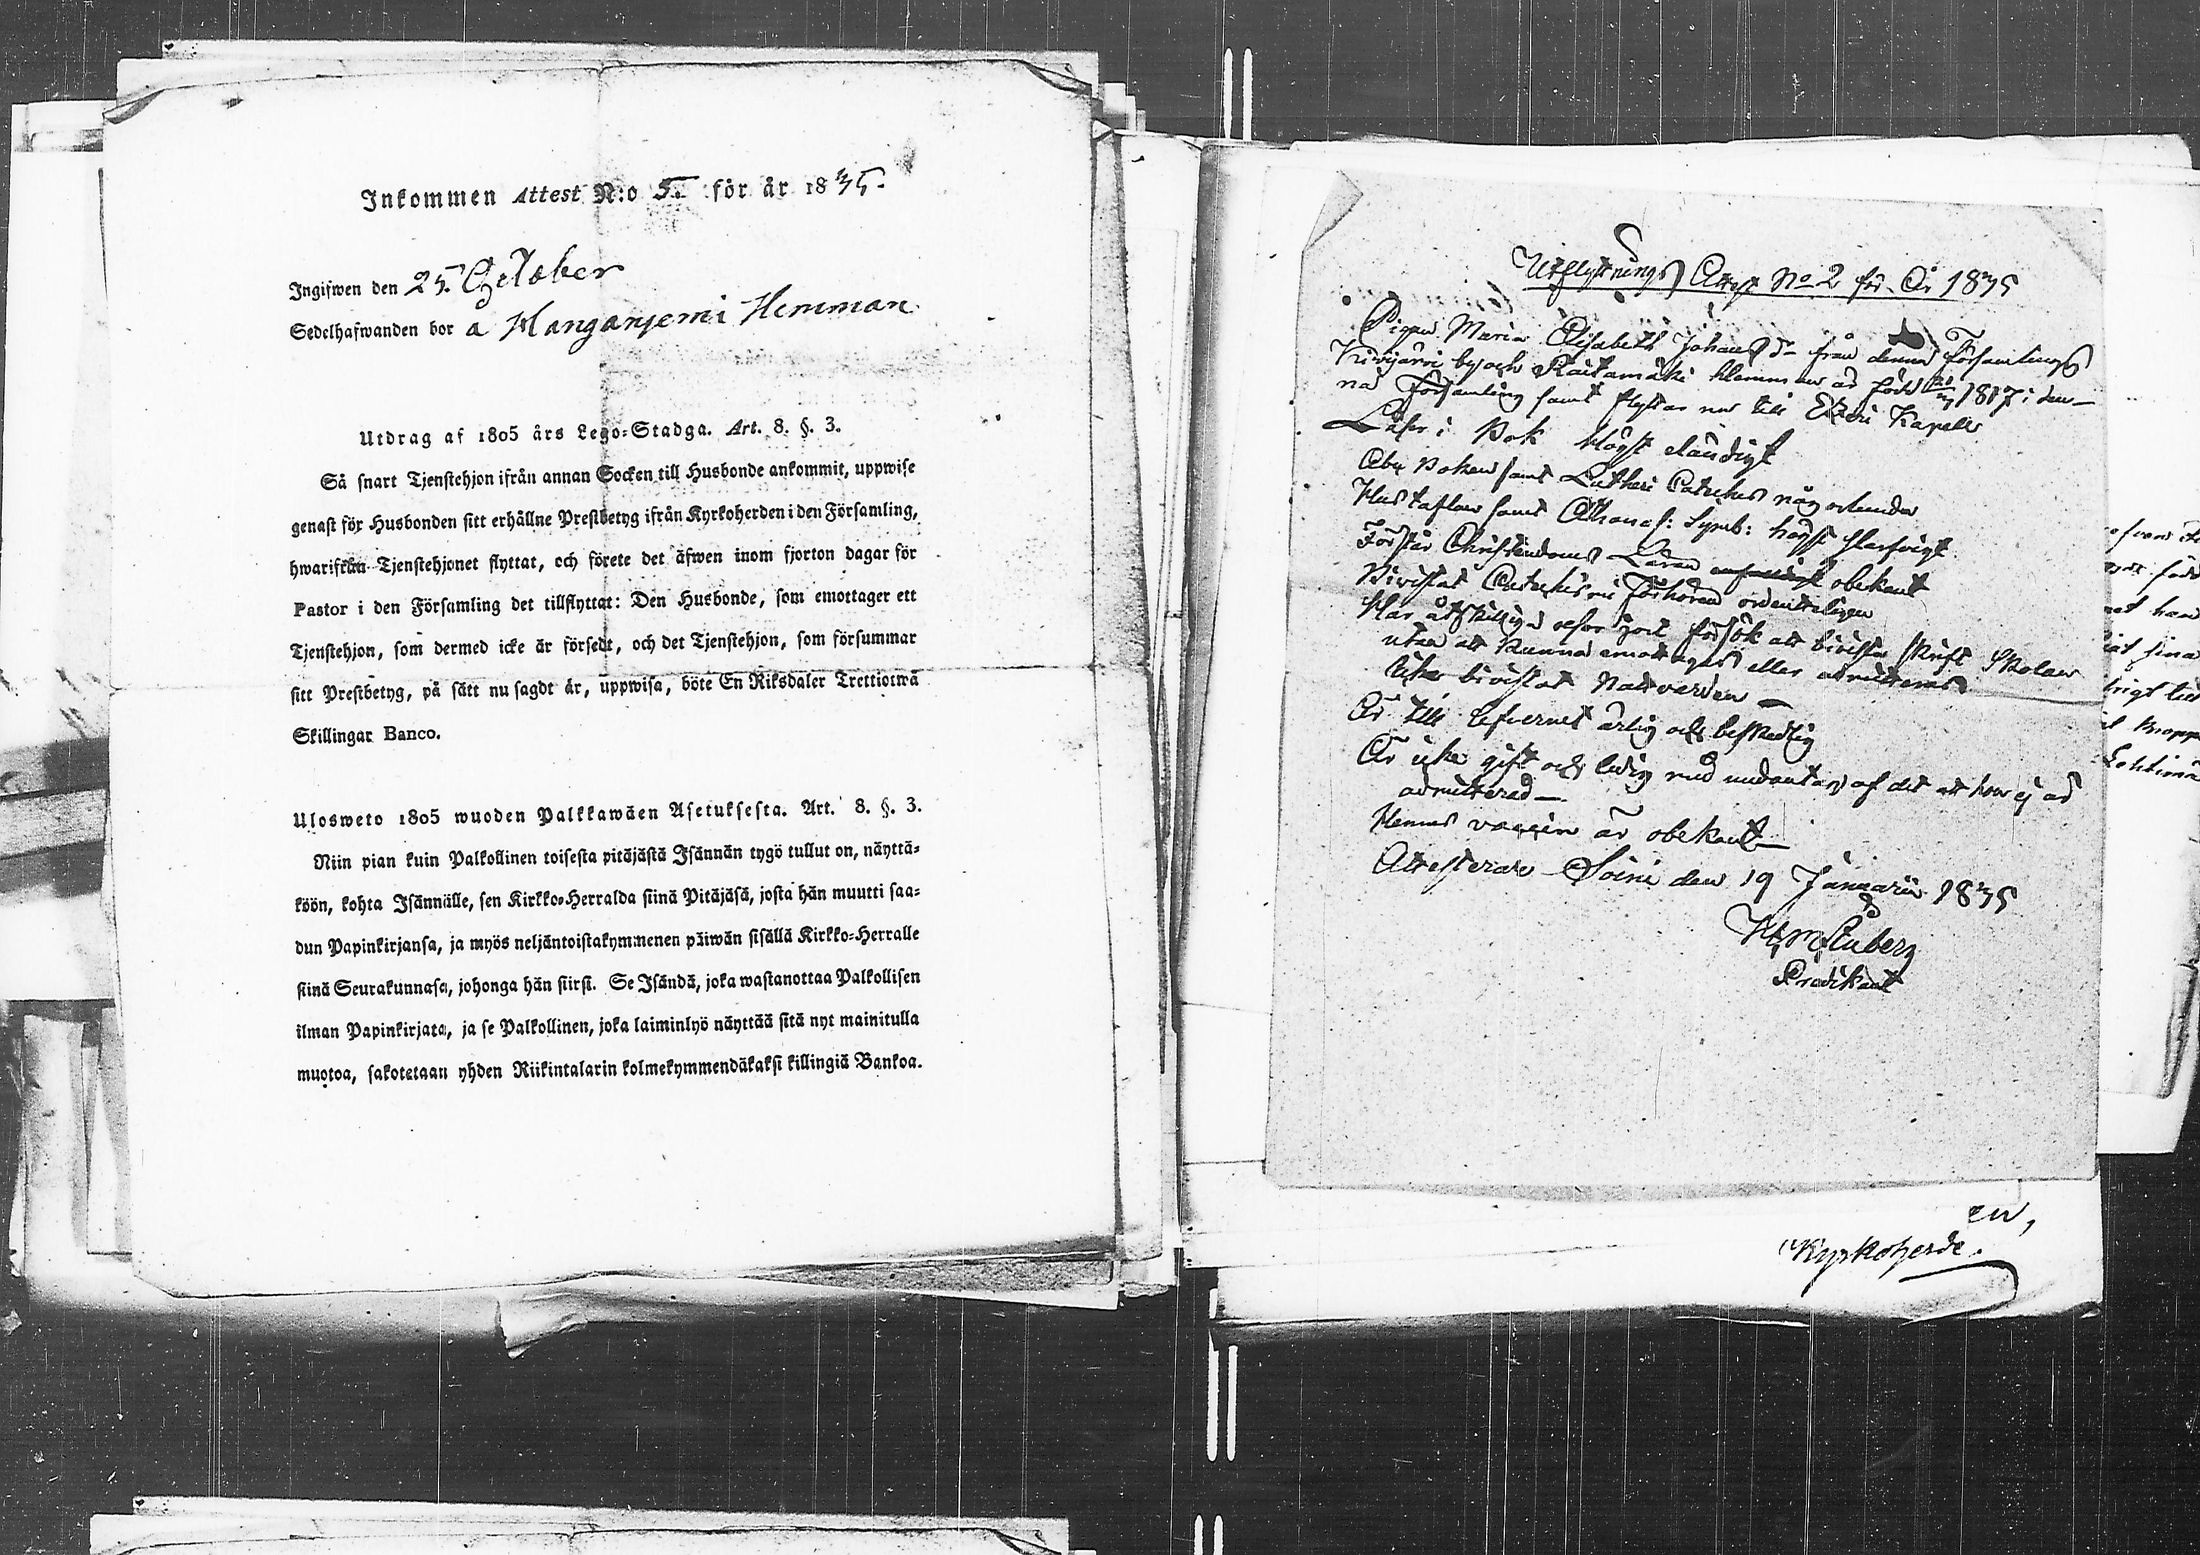 Inkommen Attest N:o 5. för år 1835.
Ingifwen den 25. October
Sedelhafwanden bor å Hanganjemi Hemman
Utdrag af 1805 års Lego-Stadga. Art. 8. §. 3.
Så snart Tjenstehjon ifrån annan Socken till Husbonde ankommit, uppwise
genast för Husbonden sitt erhållne Prestbetyg ifrån Kyrkoherden i den Församling,
hwarifrån Tjenstehjonet flyttat, och förete det äfwen inom fjorton dagar för
Pastor i den Församling det tillflyttat: Den Husbonde, som emottager ett
Tjenstehjon, som dermed icke är försedt, och det Tjenstehjon, som försummar
sitt Prestbetyg, på sätt nu sagdt är, uppwisa, böte En Riksdaler Trettiotwå
Skillingar Banco.
Ulosweto 1805 wuoden Palkkawäen Asetuksesta. Art. 8. §. 3.
Niin pian kuin Palkollinen toisesta pitäjästä Isännän tygö tullut on, näyttä-
köön, kohta Isännälle, sen Kirkko-Herralda siinä Pitäjäsä, josta hän muutti saa-
dun Papinkirjansa, ja myös neljäntoistakymmenen päiwän sisällä Kirkko-Herralle
siinä Seurakunnasa, johonga hän siirsi. Se Isändä, joka wastanottaa Palkollisen
ilman Papinkirjata, ja se Palkollinen, joka laiminlyö näyttää sitä nyt mainitulla
muotoa, sakotetaan yhden Riikintalarin kolmekymmendäkaksi killingiä Bankoa.
Utflyttnings Attest No 2 för År 1835
Pigan Maria Elisabeth Johansdr från denna Församlings
Kivijärvi by och Raitamäki Hemman är född 1817 i den-
na Församling samt flyttar nu till Etseri Kapell
Läser i Bok högst eländigt
Abc Boken samt Lutheri Cateches någorlunda
Hustaflan samt Athanas: Symb: högst slarfvigt
Förstår Christendoms Läran obekant
Bivistat Catechismi Förhören ordenteligen
Har åtskillige resor gort försök att bivista Skrift Skolan
utan att kunna emottagas eller admitteras
Icke bivistat Nattvarden
Är till lefvernet ärlig och beskedlig
Är icke gift och ledig med undantag af det att hon ej är
admitterad
Hennes vaccin är obekant
Attesterar Soini den 19 Januarii 1835
Predikant
en,
Kyrkoherde.